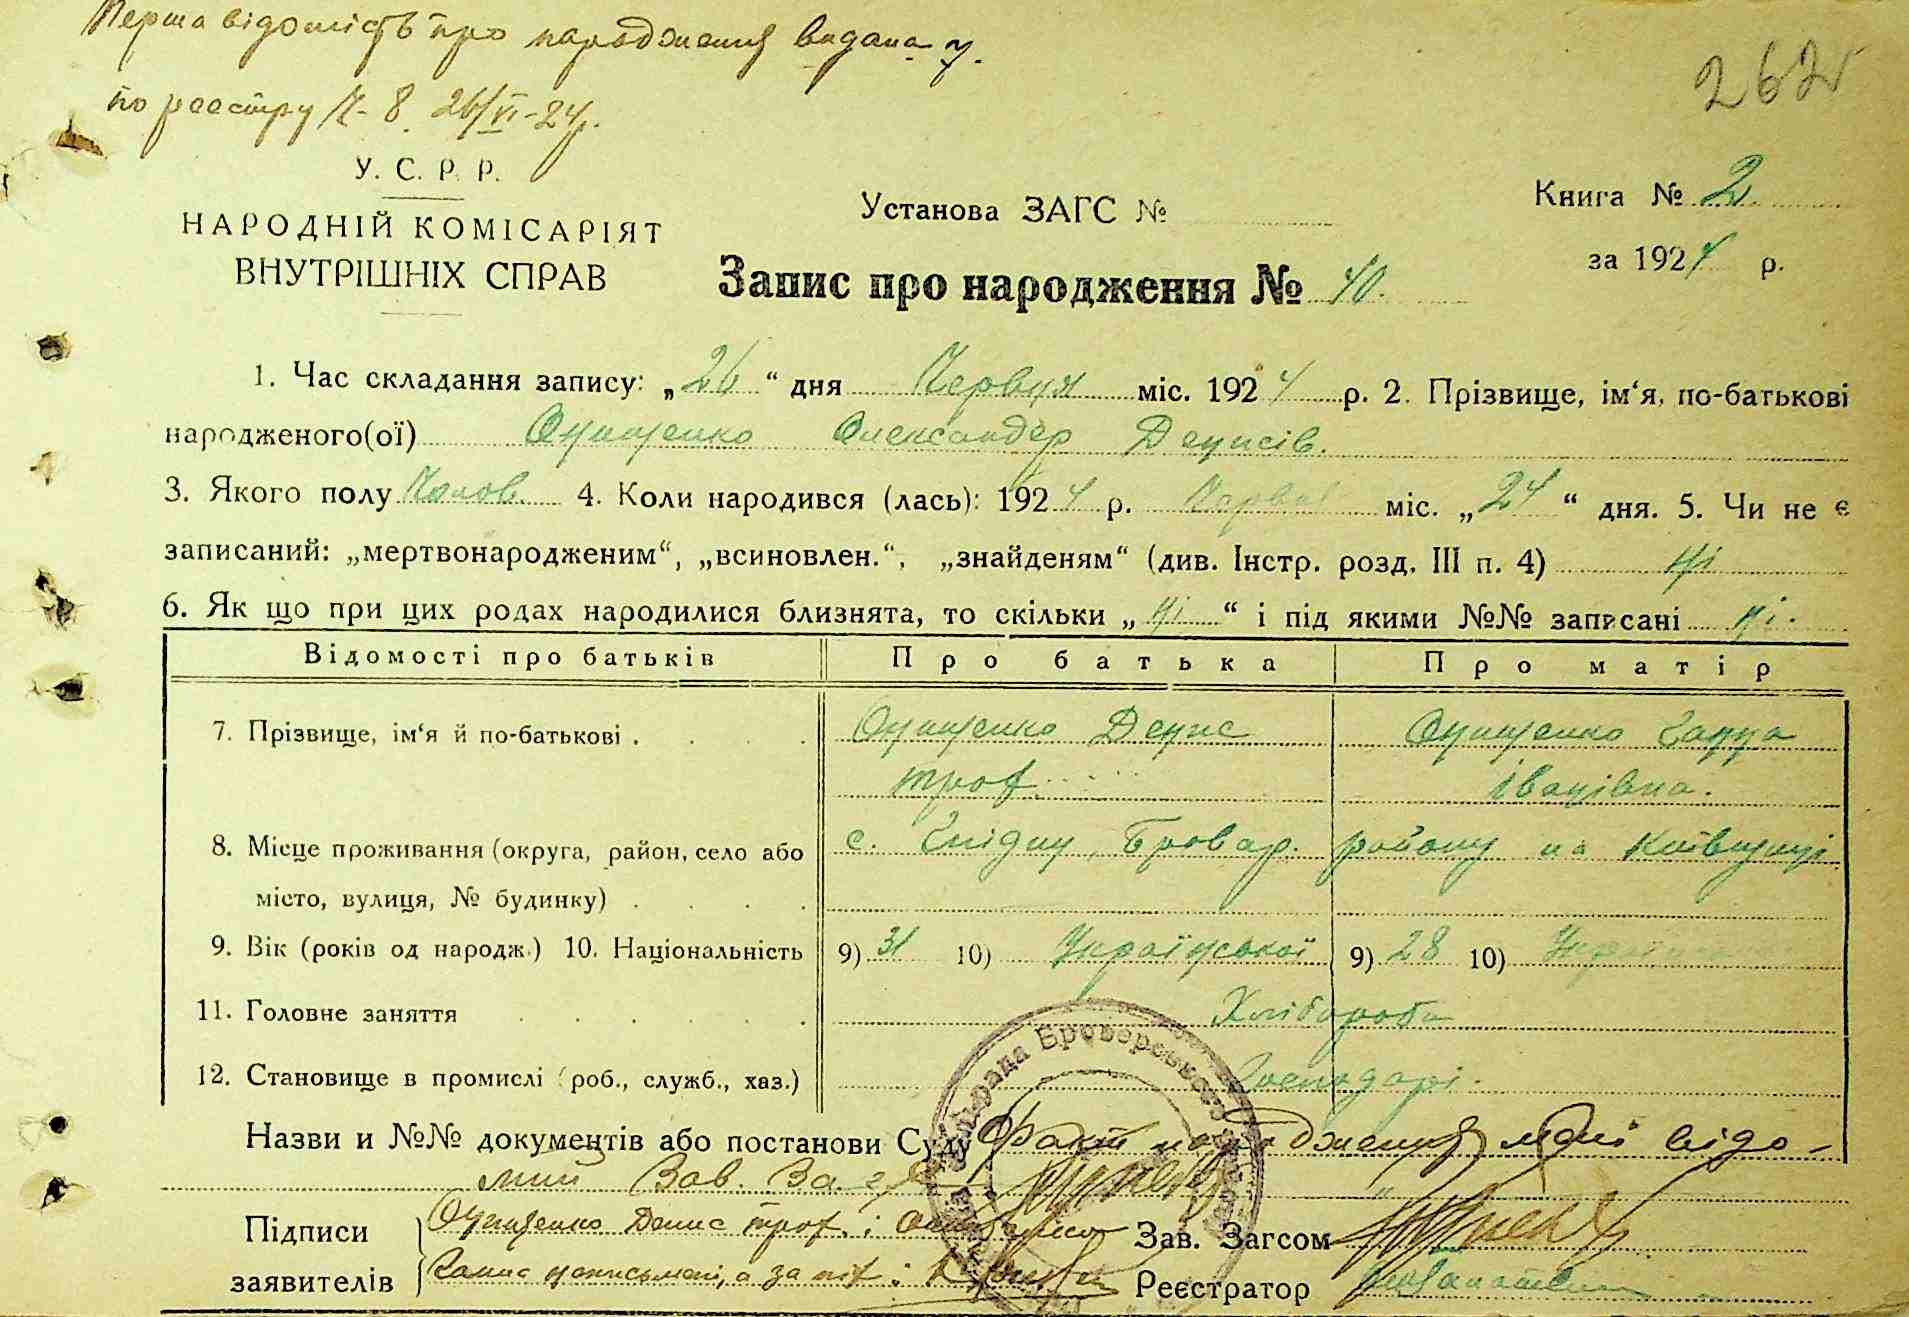 Перша відомість про народження видана
по реєстру Ч. 8. 26/VI-24р.
262
У. С. Р. Р.
НАРОДНІЙ КОМІСАРІЯТ
ВНУТРІШНІХ СПРАВ
Установа ЗАГС №
Книга № 2.
за 1924 р.
Запис про народження № 40.
1. Час складання запису: „26“ дня Червця міс. 1924 р. 2. Прізвище, ім‘я, по-батькові
народженого(ої) Онищенко Олександер Денисів.
3. Якого полу Чолов. 4. Коли народився (лась): 1924 р. міс. „24“ дня. 5. Чи не є
записаний: „мертвонародженим“, „всиновлен.“, „знайденям“ (див. Інстр. розд. III п. 4) ні
6. Як що при цих родах народилися близнята, то скільки „ні“ і під якими №№ записані ні.
Відомості про батьків Про батька Про матір
7. Прізвище, ім‘я й по-батькові . Онищенко Денис Онищенко Ганна
троф. Іванівна.
8. Місце проживання (округа, район, село або с. Гнідин, Бровар. району на Київщині
місто, вулиця, № будинку)
9. Вік (років од народж.) 10. Національність 9) 31 10) Української 9) 28 10)
11. Головне заняття Хлібороби
12. Становище в промислі (роб., служб., хаз.) Господарі.
Назви и №№ документів або постанови Суду Факт народження мені відо-
мий Зав. Загс
Підписи Онищенко Денис троф. і Зав. Загсом
заявителів неписьмені, а за них Реєстратор